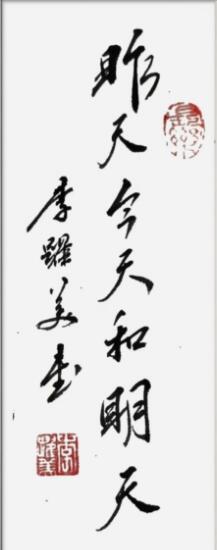 昨天今天和明天
李躍美書